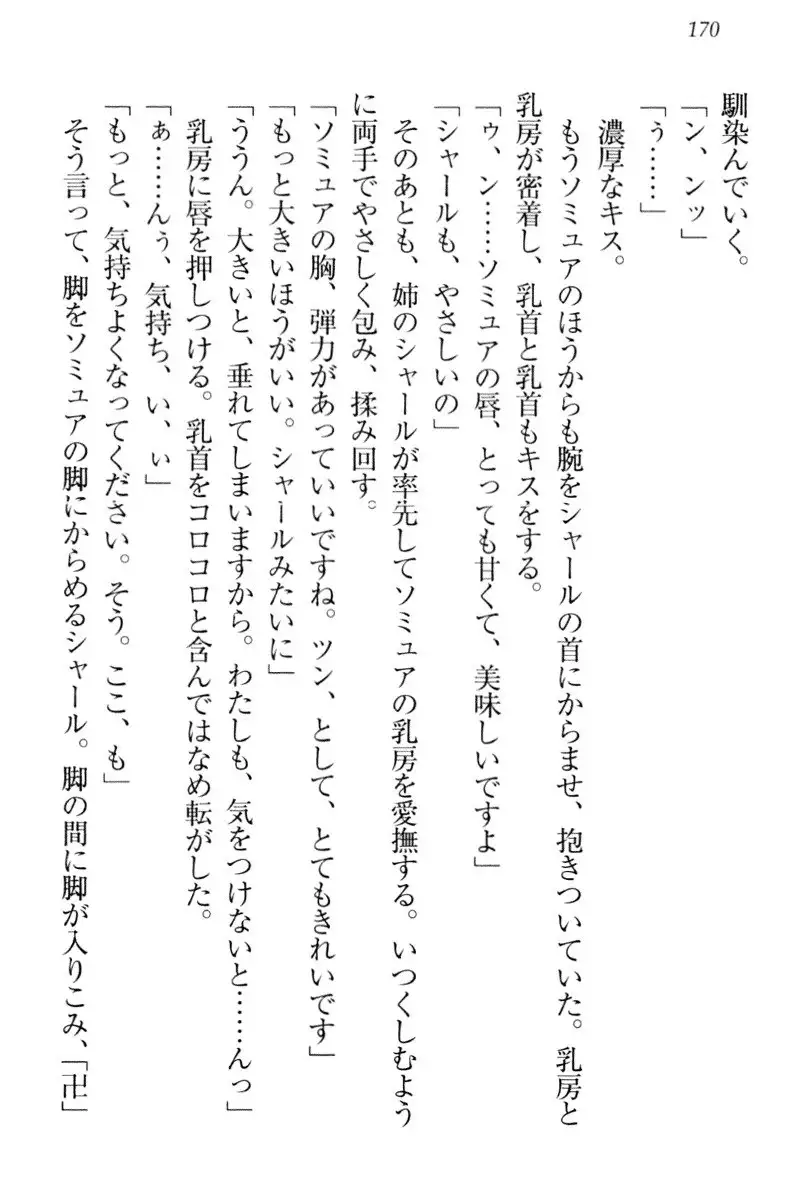 170
馴染んでいく。
「ン、ンッ」
「ぅ……」
濃厚なキス。
もうソミュアのほうからも腕をシャールの首にからませ、抱きついていた。乳房と
乳房が密着し、乳首と乳首もキスをする。
「ゥ、ン……ソミュアの唇、とっても甘くて、美味しいですよ」
「シャールも、やさしいの」
そのあとも、姉のシャールが率先してソミュアの乳房を愛撫する。いつくしむよう
に両手でやさしく包み、揉み回す。
「ソミュアの胸、弾力があっていいですね。ツン、として、とてもきれいです」
「もっと大きいほうがいい。シャールみたいに」
「ううん。大きいと、垂れてしまいますから。わたしも、気をつけないと……んっ」
乳房に唇を押しつける。乳首をコロコロと含んではなめ転がした。
「ぁ……んぅ、気持ち、い、ぃ」
「もっと、気持ちよくなってください。そう。ここ、も」
そう言って、脚をソミュアの脚にからめるシャール。脚の間に脚が入りこみ、「卍」